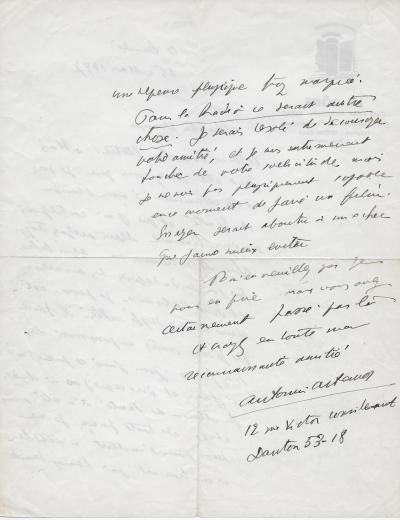 une dépense physique trop marquée.
Pour la Radio ce serait autre
chose. Je serais désolé de décourager
votre amitié, et je suis extrêmement
touché de votre sollicitude, mais
je ne suis pas physiquement capable
en ce moment de faire un film.
Essayer serait aboutir à un échec
que j'aime mieux éviter
Ne m'en veuillez pas je
vous en prie mais vous avez
certainement passé par là
et croyez en toute ma
reconnaissante amitié
Antonin Artaud
12 rue Victor Considerant
Danton 53-18